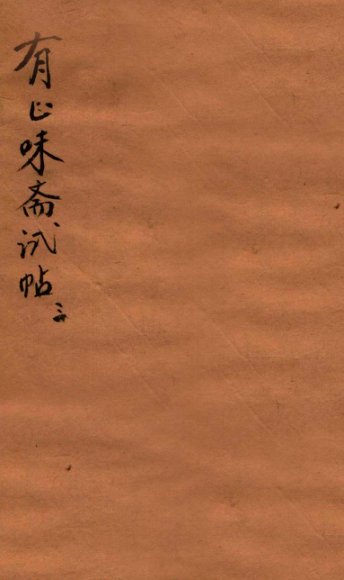 有正味斋试帖 三